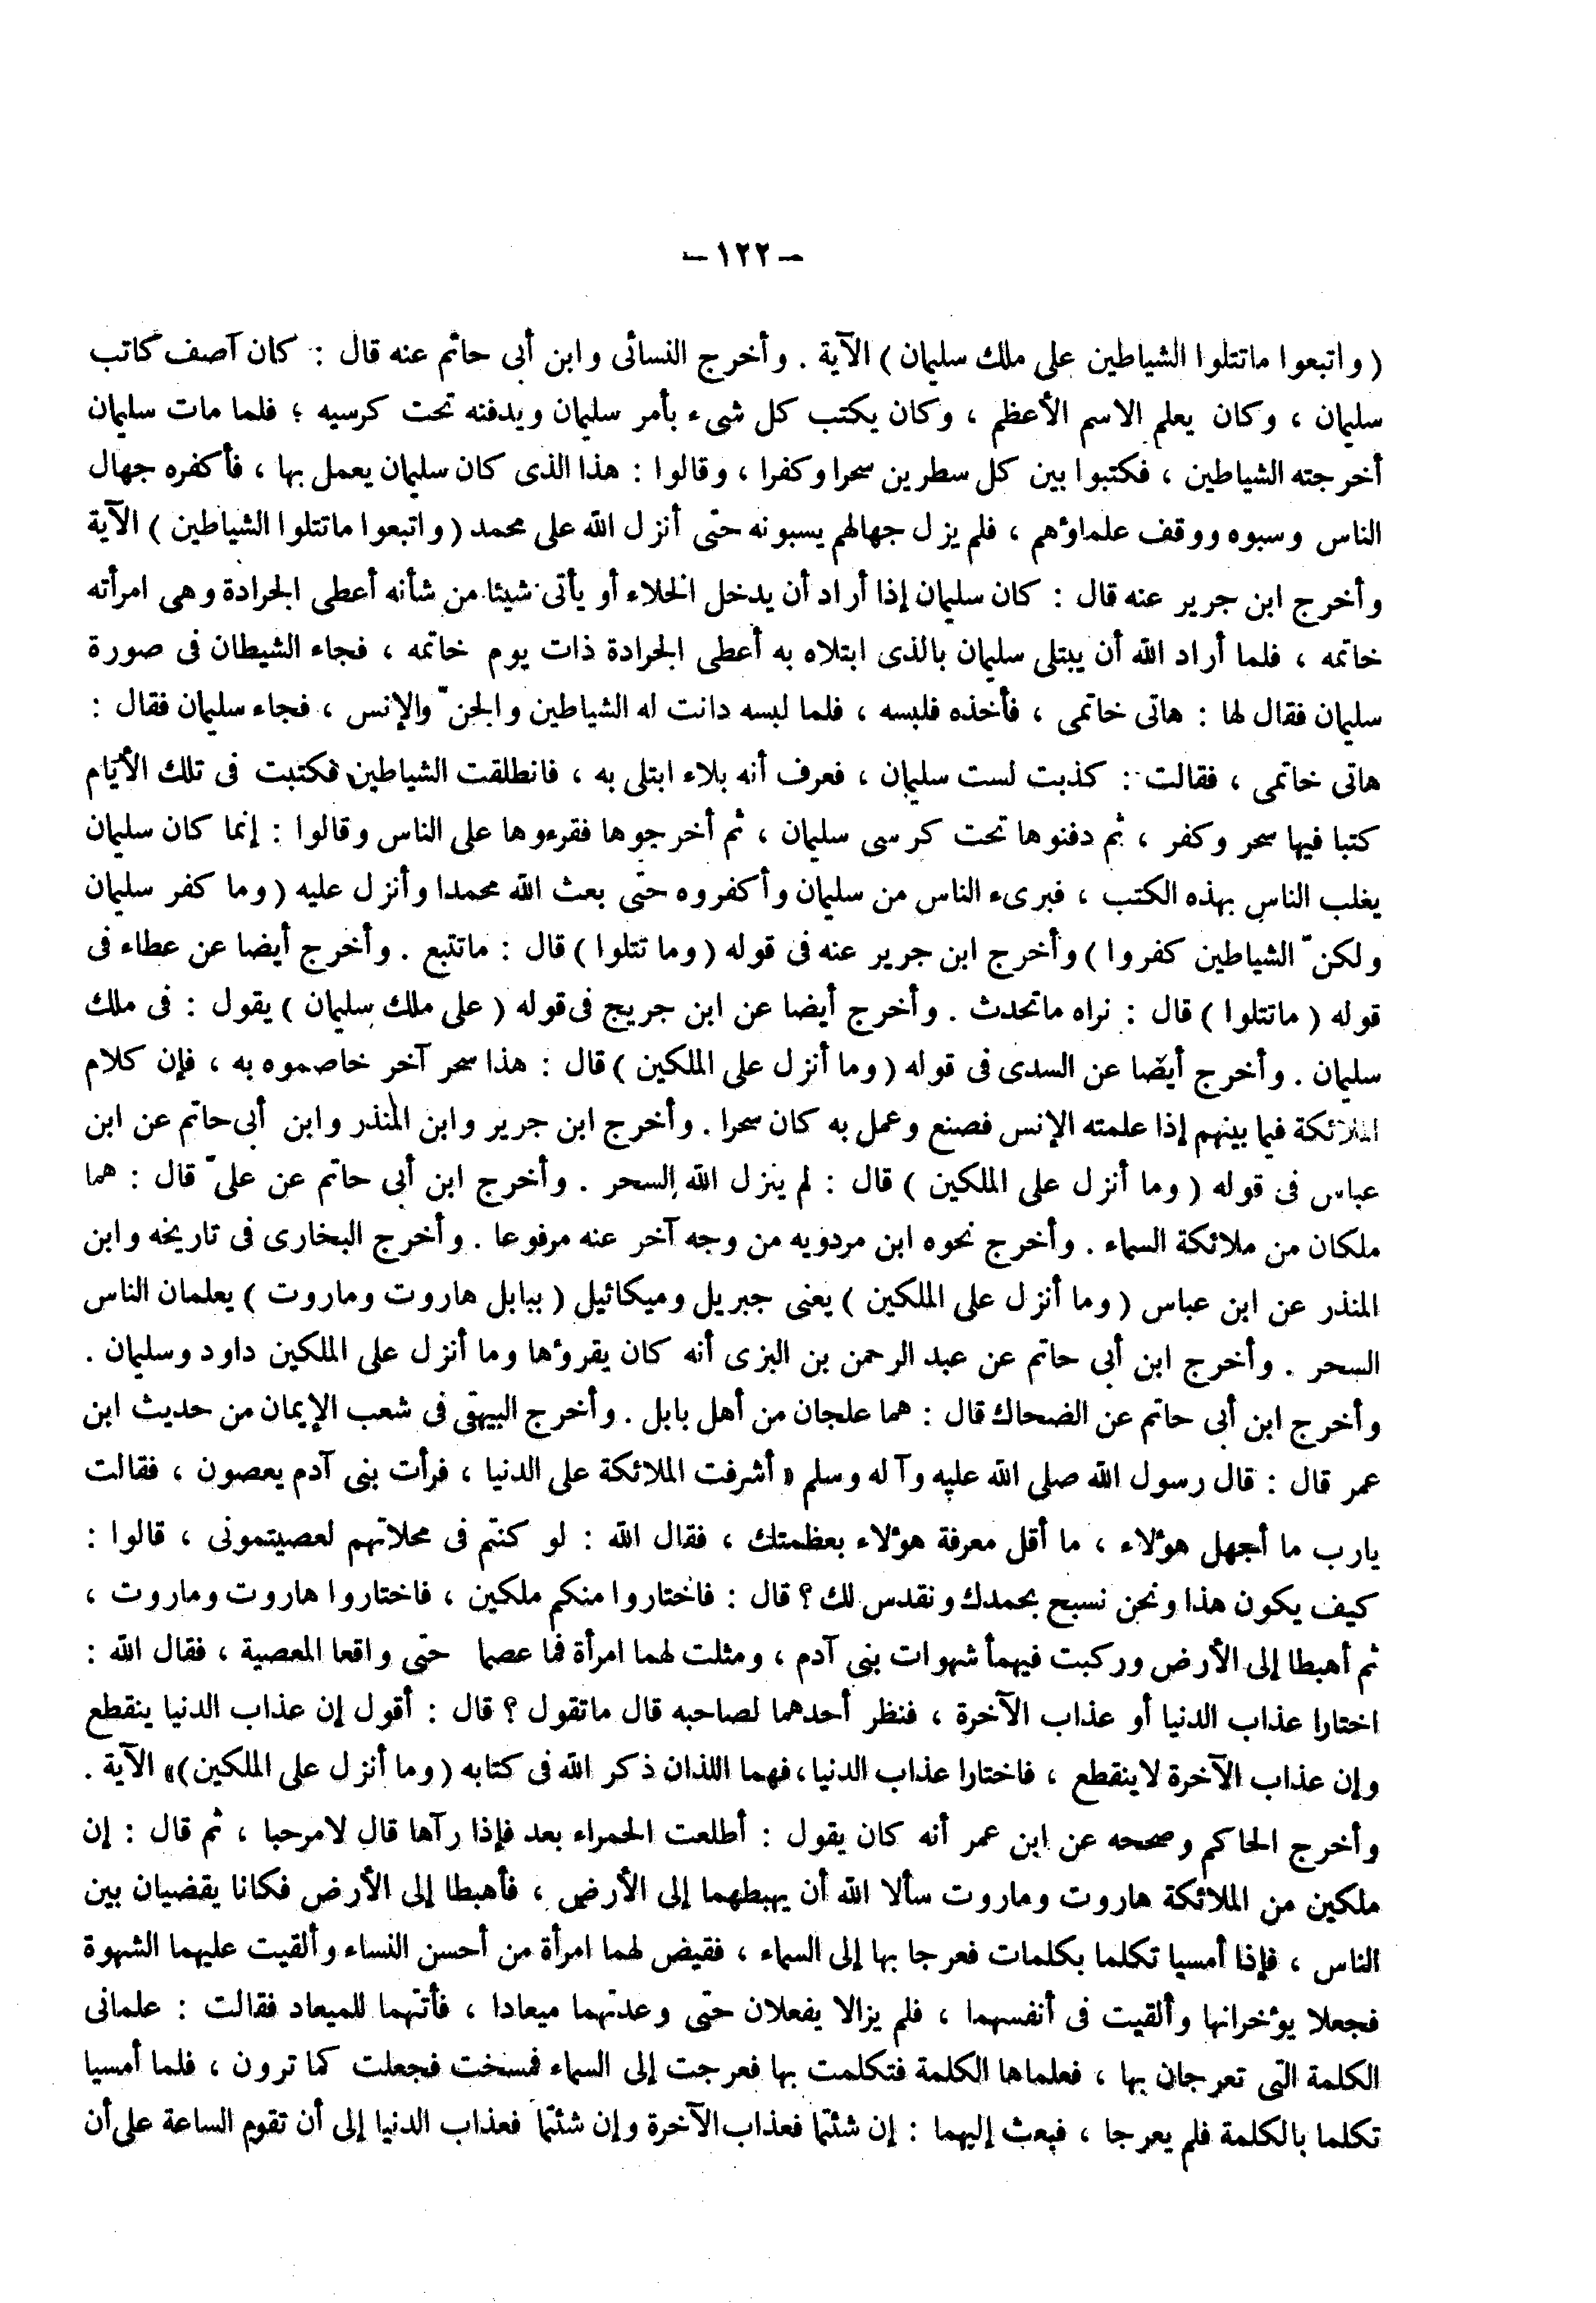 - ١٢٢ -
( واتبعوا ماتتلوا الشياطين على ملك سليمان ) الآية . وأخرج النسائى وابن أبى حاتم عنه قال : كان آصف كاتب
سليمان ، وكان يعلم الاسم الأعظم ، وكان يكتب كل شىء بأمر سليمان ويدفنه تحت كرسيه ؛ فلما مات سليمان
أخرجته الشياطين ، فكتبوا بين كل سطرين سحرا وكفرا ، وقالوا : هذا الذى كان سليمان يعمل بها ، فأكفره جهال
الناس وسبوه ووقف علماؤهم ، فلم يزل جهالهم يسبونه حتى أنزل الله على محمد ( واتبعوا ماتتلوا الشياطين ) الآية
وأخرج ابن جرير عنه قال : كان سليمان إذا أراد أن يدخل الخلاء أو يأتى شيئا من شأنه أعطى الجرادة وهى امرأته
خاتمه ، فلما أراد الله أن يبتلى سليمان بالذى ابتلاه به أعطى الجرادة ذات يوم خاتمه ، فجاء الشيطان فى صورة
سليمان فقال لها : هاتى خاتمى ، فأخذه فلبسه ، فلما لبسه دانت له الشياطين والجنّ والإنس ، فجاء سليمان فقال :
هاتى خاتمى ، فقالت : كذبت لست سليمان ، فعرف أنه بلاء ابتلى به ، فانطلقت الشياطين فكتبت فى تلك الأيام
كتبا فيها سحر وكفر ، ثم دفنوها تحت كرسى سليمان ، ثم أخرجوها فقرءوها على الناس وقالوا : إنما كان سليمان
يغلب الناس بهذه الكتب ، فبرىء الناس من سليمان وأكفروه حتى بعث الله محمدا وأنزل عليه ( وما كفر سليمان
ولكنّ الشياطين كفروا ) وأخرج ابن جرير عنه فى قوله ( وما تتلوا ) قال : ماتتبع . وأخرج أيضا عن عطاء فى
قوله ( ماتتلوا ) قال : نراه ماتحدث . وأخرج أيضا عن ابن جريج فى قوله ( على ملك سليمان ) يقول : فى ملك
سليمان . وأخرج أيضا عن السدى فى قوله ( وما أنزل على الملكين ) قال : هذا سحر آخر خاصموه به ، فإن كلام
الملائكة فيما بينهم إذا علمته الإنس فصنع وعمل به كان سحرا . وأخرج ابن جرير وابن المنذر وابن أبى حاتم عن ابن
عباس فى قوله ( وما أنزل على الملكين ) قال : لم ينزل الله السحر . وأخرج ابن أبى حاتم عن علىّ قال : هما
ملكان من ملائكة السماء . وأخرج نحوه ابن مردويه من وجه آخر عنه مرفوعا . وأخرج البخارى فى تاريخه وابن
المنذر عن ابن عباس ( وما أنزل على الملكين ) يعنى جبريل وميكائيل ( ببابل هاروت وماروت ) يعلمان الناس
السحر . وأخرج ابن أبى حاتم عن عبد الرحمن بن البزى أنه كان يقرؤها وما أنزل على الملكين داود وسليمان .
وأخرج ابن أبى حاتم عن الضحاك قال : هما علجان من أهل بابل . وأخرج البيهقى فى شعب الإيمان من حديث ابن
عمر قال : قال رسول الله صلى الله عليه وآله وسلم « أشرفت الملائكة على الدنيا ، فرأت بنى آدم يعصون ، فقالت
يارب ما أجهل هؤلاء ، ما أقل معرفة هؤلاء بعظمتك ، فقال الله : لو كنتم فى محلاتهم لعصيتمونى ، قالوا :
كيف يكون هذا ونحن نسبح بحمدك ونقدس لك ؟ قال : فاختاروا منكم ملكين ، فاختاروا هاروت وماروت ،
ثم أهبطا إلى الأرض وركبت فيهما شهوات بنى آدم ، ومثلت لهما امرأة فما عصما حتى واقعا المعصية ، فقال الله :
اختارا عذاب الدنيا أو عذاب الآخرة ، فنظر أحدهما لصاحبه قال ماتقول ؟ قال : أقول إن عذاب الدنيا ينقطع
وإن عذاب الآخرة لاينقطع ، فاختارا عذاب الدنيا ، فهما اللذان ذكر الله فى كتابه ( وما أنزل على الملكين ) » الآية .
وأخرج الحاكم وصححه عن ابن عمر أنه كان يقول : أطلعت الحمراء بعد فإذا رآها قال لامرحبا ، ثم قال : إن
ملكين من الملائكة هاروت وماروت سألا الله أن يهبطهما إلى الأرض ، فأهبطا إلى الأرض فكانا يقضيان بين
الناس ، فإذا أمسيا تكلما بكلمات فعرجا بها إلى السماء ، فقيض لهما امرأة من أحسن النساء وألقيت عليهما الشهوة
فجعلا يؤخرانها وألقيت فى أنفسهما ، فلم يزالا يفعلان حتى وعدتهما ميعادا ، فأتتهما للميعاد فقالت : علمانى
الكلمة التى تعرجان بها ، فعلماها الكلمة فتكلمت بها فعرجت إلى السماء فمسخت فجعلت كما ترون ، فلما أمسيا
تكلما بالكلمة فلم يعرجا ، فبعث إليهما : إن شئتما فعذاب الآخرة وإن شئتما فعذاب الدنيا إلى أن تقوم الساعة على أن